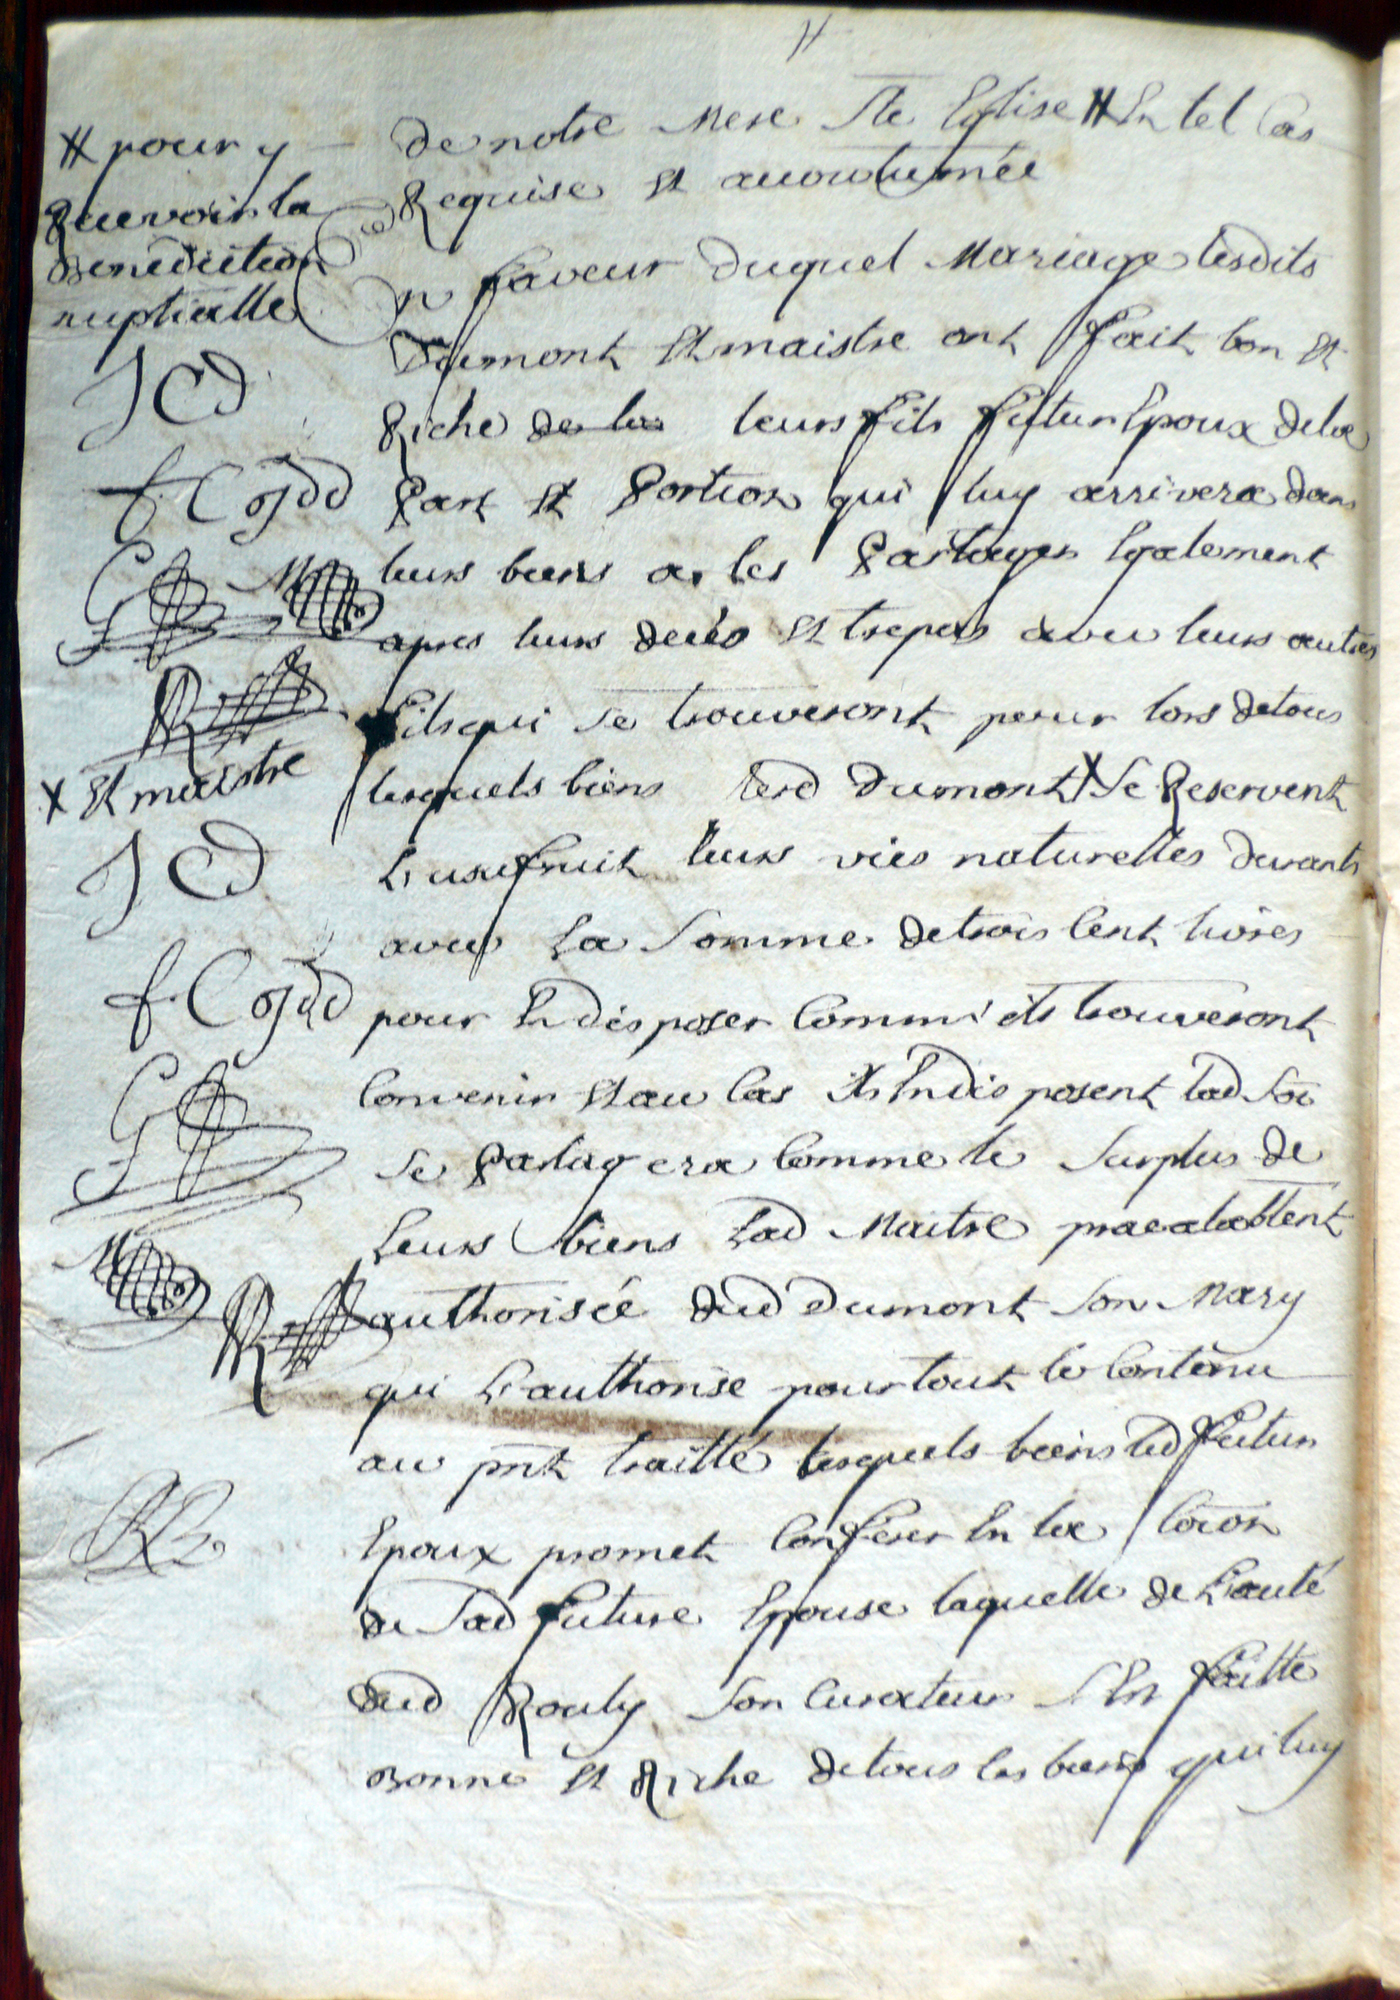 de notre Mere Ste Eglise # En tel Cas
Requise Et accoutumée
# pour y
Recevoir la
Benediction
nuptialle
J C D
f. C
M
En faveur duquel Mariage lesdits
Dumont Et maistre ont fait bon Et
Riche de les leurs fils futur Epoux de la
Part Et Portion qui luy arrivera dans
leurs biens a les Partager Egalement
apres leurs deces Et trepas avec leurs autres
fils qui se trouveront pour lors de tous
lesquels biens lesd Dumont X Se Reservent
X Et maistre
J C D
f. C
M
L'usufruit leurs vies naturelles durants
avec La Somme de trois Cent livres
pour En disposer Comm' ils trouveront
Convenir Et au Cas ils En dis posent lad So͞e
Se Partagera Comme le Surplus de
Leurs biens Lad Maitre praealablent
authorisée dud Dumont Son Mary
qui L'authorise pour tout le Contenu
au pnt traitté lesquels biens led futur
Epoux promet Conferer En la Co͞on
de Sad future Epouse laquelle de L'auté
dud Rouly Son Curateur S'En faitte
Bonne Et Riche de tous les biens qui luy